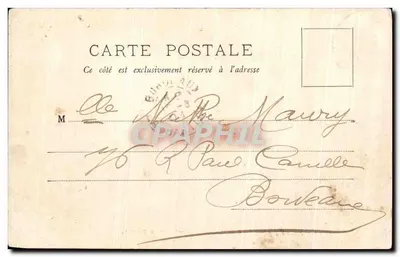 CARTE POSTALE
Ce côté est exclusivement réservé à l'adresse
M lle Maury
CPAPHIL
76 R Paul Camille
Bordeaux